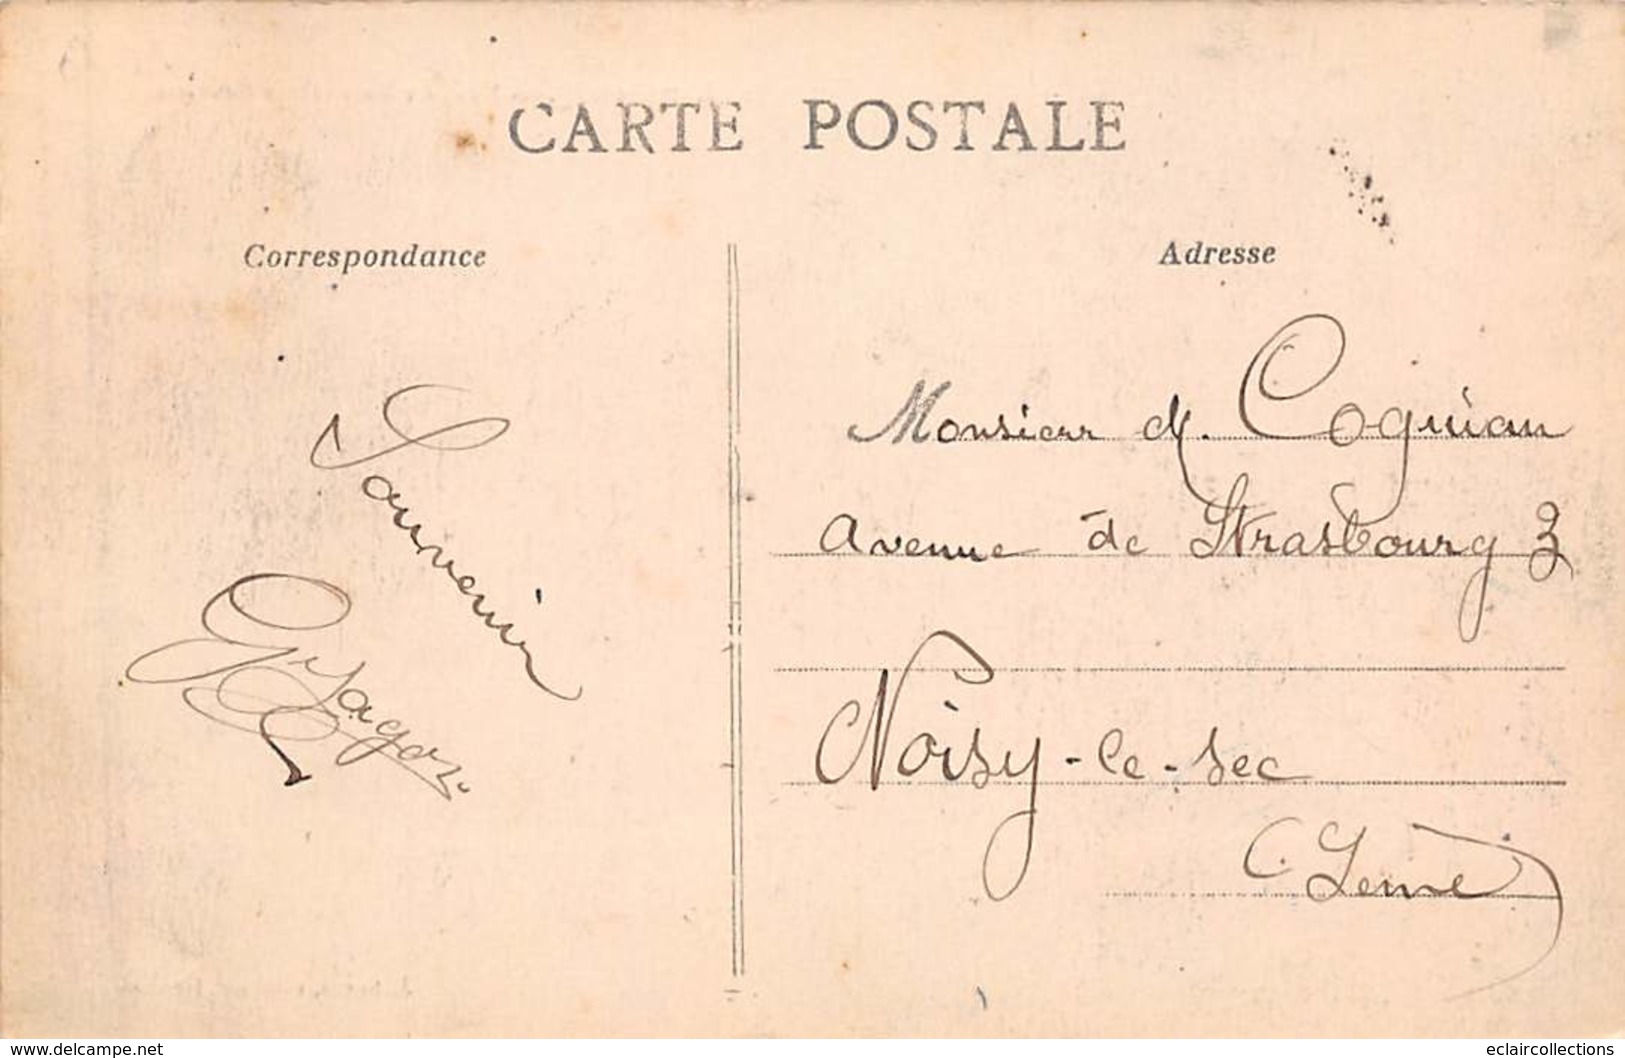 CARTE POSTALE
Correspondance
Adresse
Souvenir
Monsieur
Avenue de Strasbourg 3
Noisy-le-sec
(Seine)
www.delcampe.net
eclaircollections